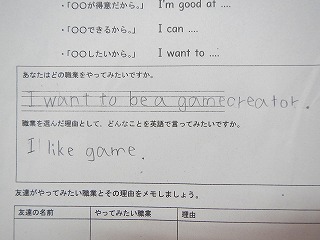 ・「〇〇が得意だから。」 I'm good at ....
・「〇〇できるから。」 I can ....
・「〇〇したいから。」 I want to ....
あなたはどの職業をやってみたいですか。
I want to be a gamecreator.
職業を選んだ理由として、どんなことを英語で言ってみたいですか。
I like game.
友達がやってみたい職業とその理由をメモしましょう。
友達の名前 やってみたい職業 理由